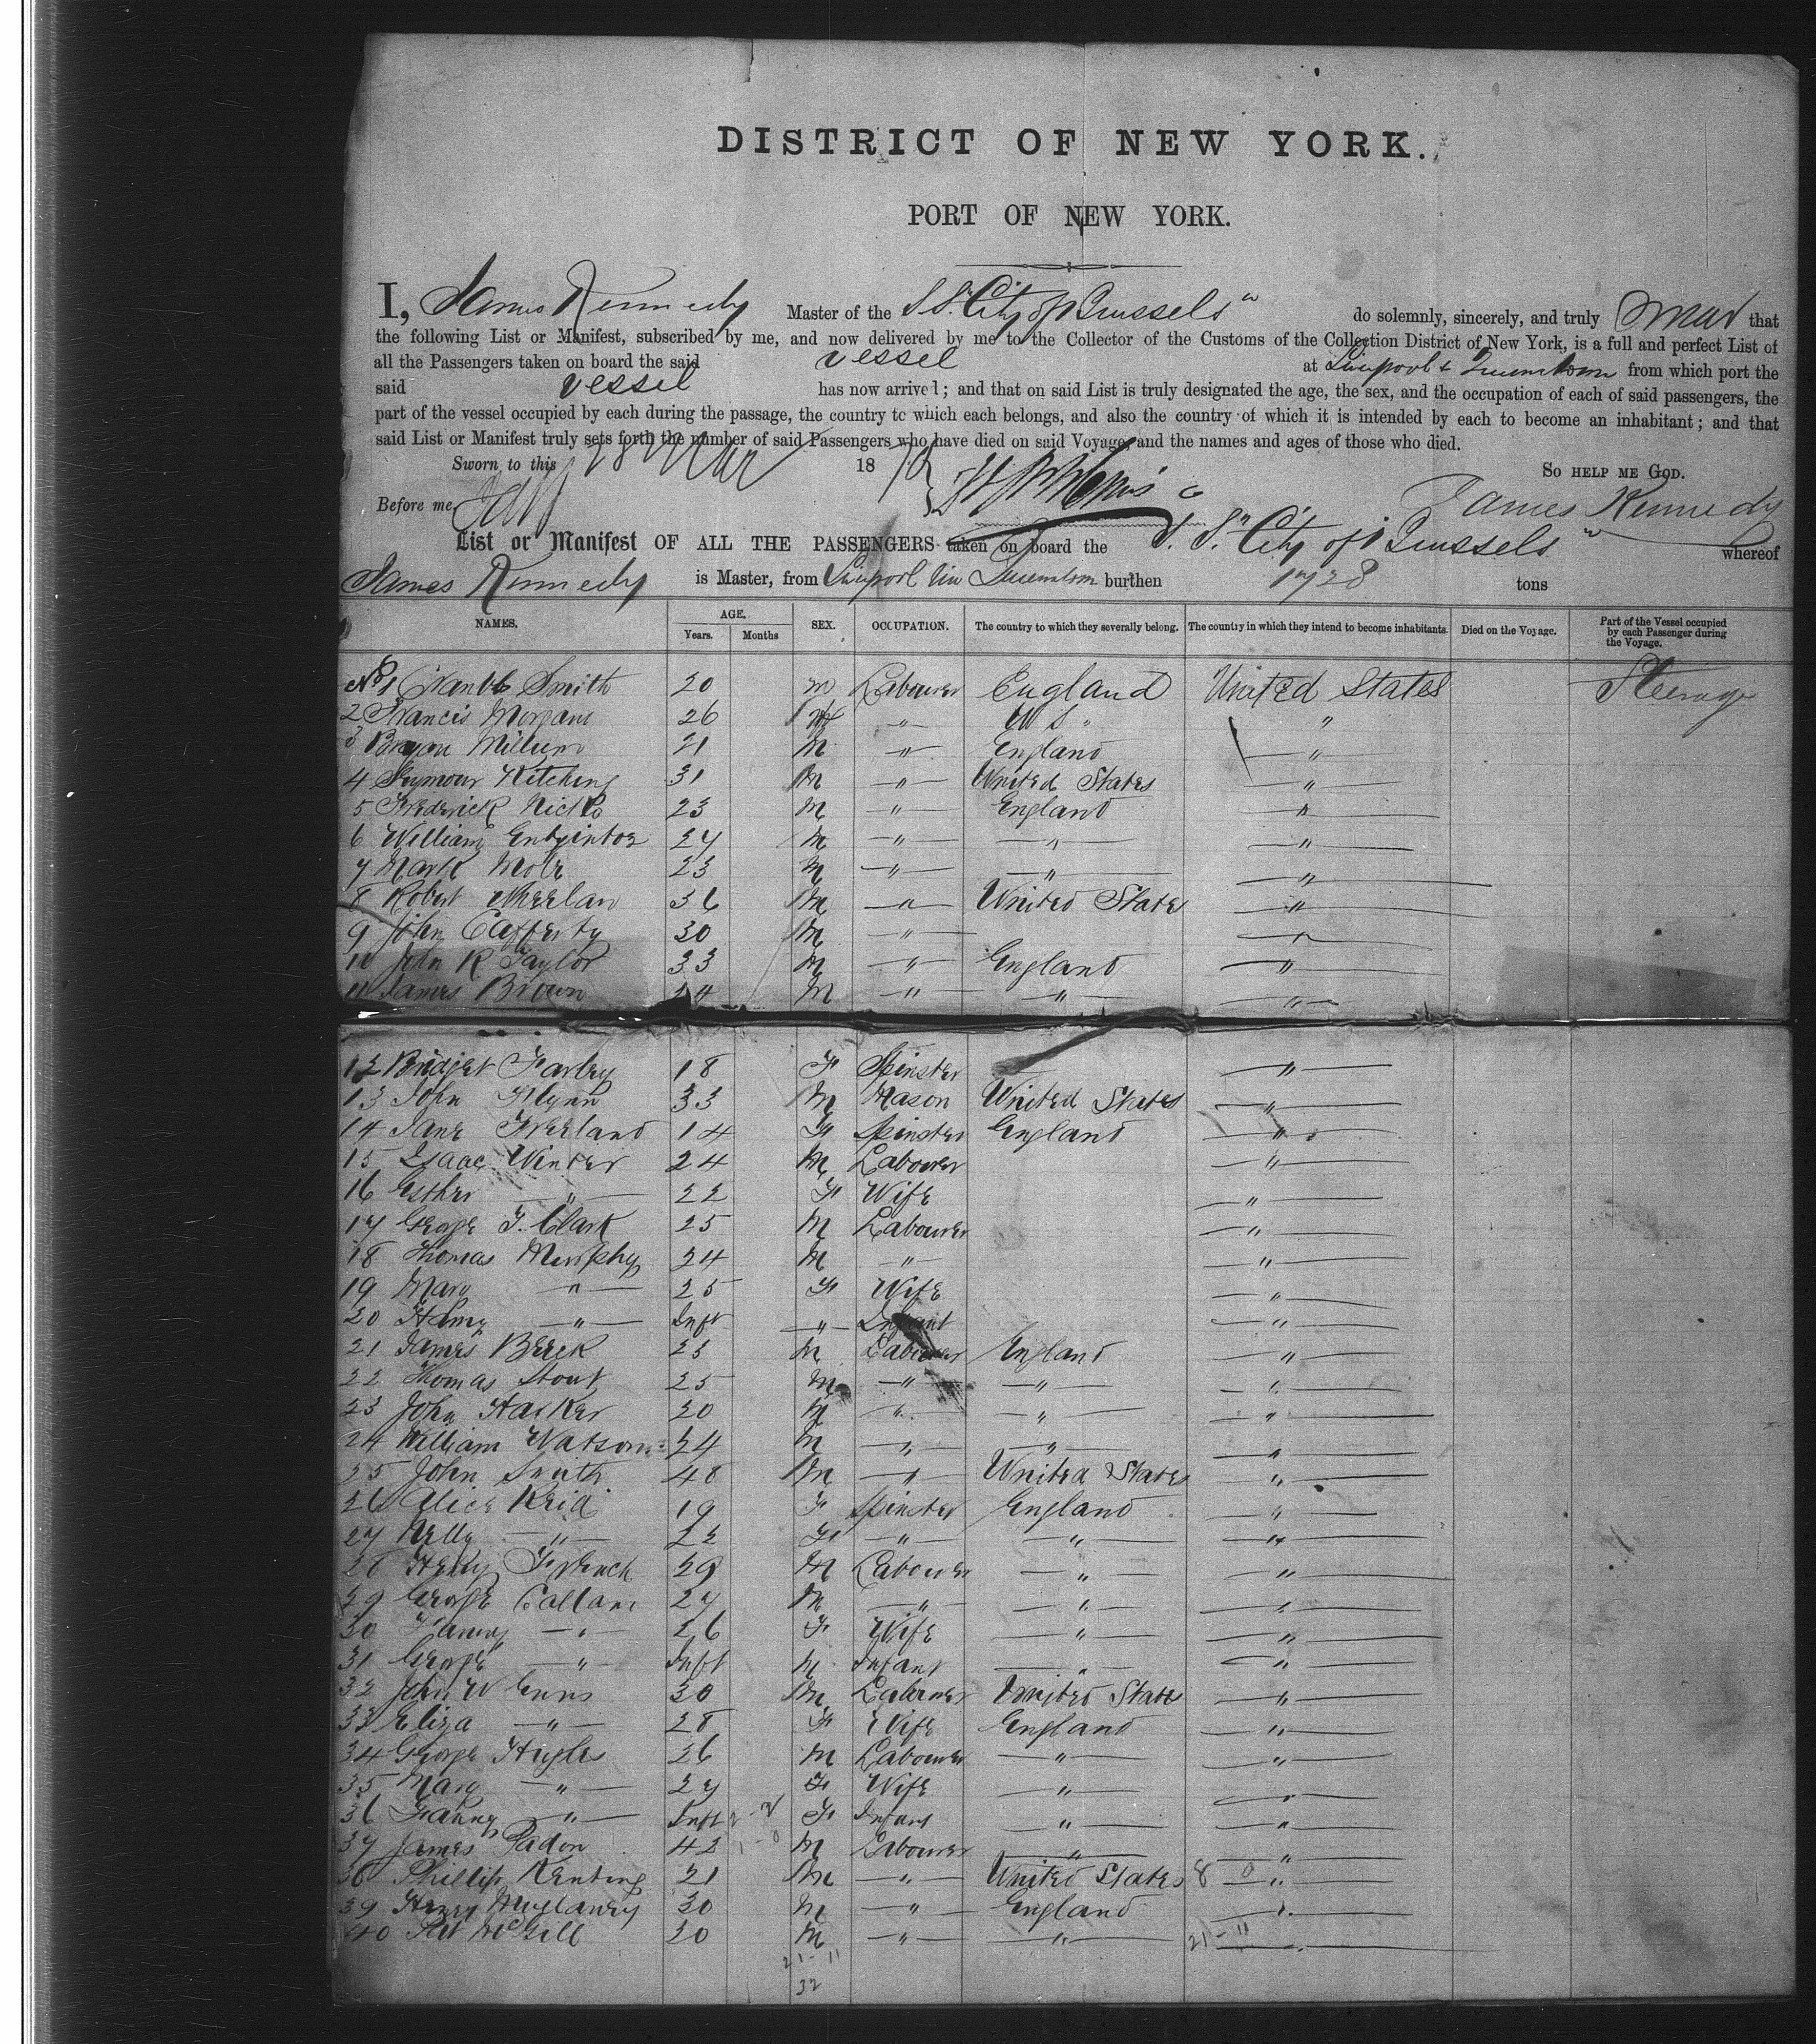 DISTRICT OF NEW YORK.
PORT OF NEW YORK.
I, James Kennedy Master of the S.S. "City of Brussels" do solemnly, sincerely, and truly swear that
the following List or Manifest, subscribed by me, and now delivered by me to the Collector of the Customs of the Collection District of New York, is a full and perfect List of
all the Passengers taken on board the said vessel at Liverpool & Queenstown from which port the
said vessel has now arrived; and that on said List is truly designated the age, the sex, and the occupation of each of said passengers, the
part of the vessel occupied by each during the passage, the country to which each belongs, and also the country of which it is intended by each to become an inhabitant; and that
said List or Manifest truly sets forth the number of said Passengers who have died on said Voyage, and the names and ages of those who died.
Sworn to this 28 Mar 18 So HELP ME GOD.
Before me James Kennedy
List or Manifest OF ALL THE PASSENGERS taken on board the S.S. "City of Brussels" whereof
James Kennedy is Master, from Liverpool via Queenstown burthen tons
NAMES. AGE. Years. Months SEX. OCCUPATION. The country to which they severally belong. The country in which they intend to become inhabitants. Died on the Voyage. Part of the Vessel occupied by each Passenger during the Voyage.
No 1 Smith 20 m Labourer England United States Steerage
2 Francis Morgans 26 " U S " "
3 21 M " England "
4 Seymour Kitching 31 M " United States "
5 Frederick 23 M " England "
6 William 27 M " " "
7 Mark Mole 23 M " " "
8 Robert 36 M " United States "
9 John Cafferty 30 M " "
10 John R Taylor 33 M " England "
11 James Brown 24 M " " "
12 Bridget Farley 18 F Spinster "
13 John Flynn 33 M Mason United States "
14 Jane Freeland 14 F Spinster England "
15 Isaac Winter 24 M Labourer "
16 Esther " 22 F Wife "
17 George T. Clark 25 M Labourer "
18 Thomas Murphy 24 M " "
19 Mary " 25 F Wife "
20 Henry " Inft " Infant "
21 James 25 M Labourer England "
22 Thomas Stout 25 M " " "
23 John Harker 20 M " " "
24 William Watson 24 M " " "
25 John Smith 48 M " United States "
26 Alice Reid 19 F Spinster England "
27 Nelly " 22 F " " "
28 Henry French 29 M Labourer " "
29 George Callam 27 M " " "
30 Fanny " 26 F Wife " "
31 George " Inft M Infant " "
32 John W 30 M Labourer United States "
33 Eliza " 28 F Wife England "
34 George Hughes 26 M Labourer " "
35 Mary " 27 F Wife " "
36 Fanny " Inft F Infant " "
37 James Padon 42 M Labourer " "
38 Phillip Keating 21 M " United States 8 0 "
39 Henry 30 M " England "
40 Pat McGill 20 M " " 21-11 "
21-11
32